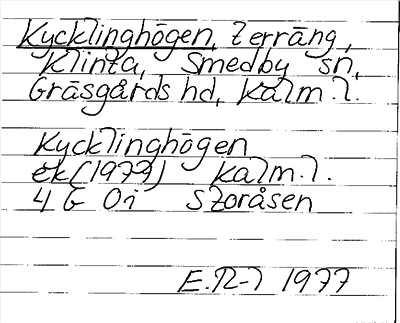 Kycklinghögen, terräng,
Klinta, Smedby sn,
Gräsgårds hd, Kalm.l.
Kycklinghögen
ek(1979) Kalm.l.
4 G 0i Storåsen
1977